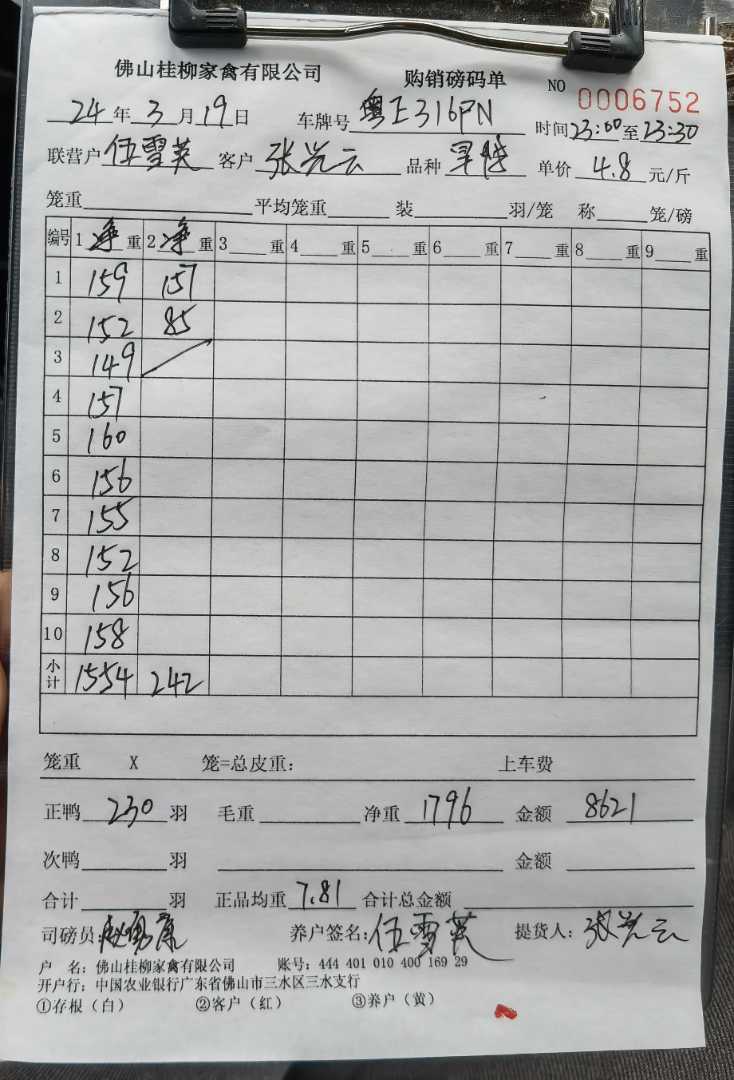 佛山桂柳家禽有限公司 购销磅码单 NO 0006752
24年3月19日 车牌号 粤E316PN 时间23:00至23:30
联营户 伍雪英 客户 张兴云 品种 单价 4.8 元/斤
笼重 平均笼重 装 羽/笼 称 笼/磅
编号 1 净 重 2 净 重 3 重 4 重 5 重 6 重 7 重 8 重 9 重
1 159 157
2 152 85
3 149
4 157
5 160
6 156
7 155
8 152
9 156
10 158
小计 1554 242
笼重 X 笼=总皮重: 上车费
正鸭 230 羽 毛重 净重 1796 金额 8621
次鸭 羽 金额
合计 羽 正品均重 7.81 合计总金额
司磅员: 养户签名: 伍雪英 提货人: 张兴云
户 名: 佛山桂柳家禽有限公司 账号: 444 401 010 400 169 29
开户行: 中国农业银行广东省佛山市三水区三水支行
①存根（白） ②客户（红） ③养户（黄）